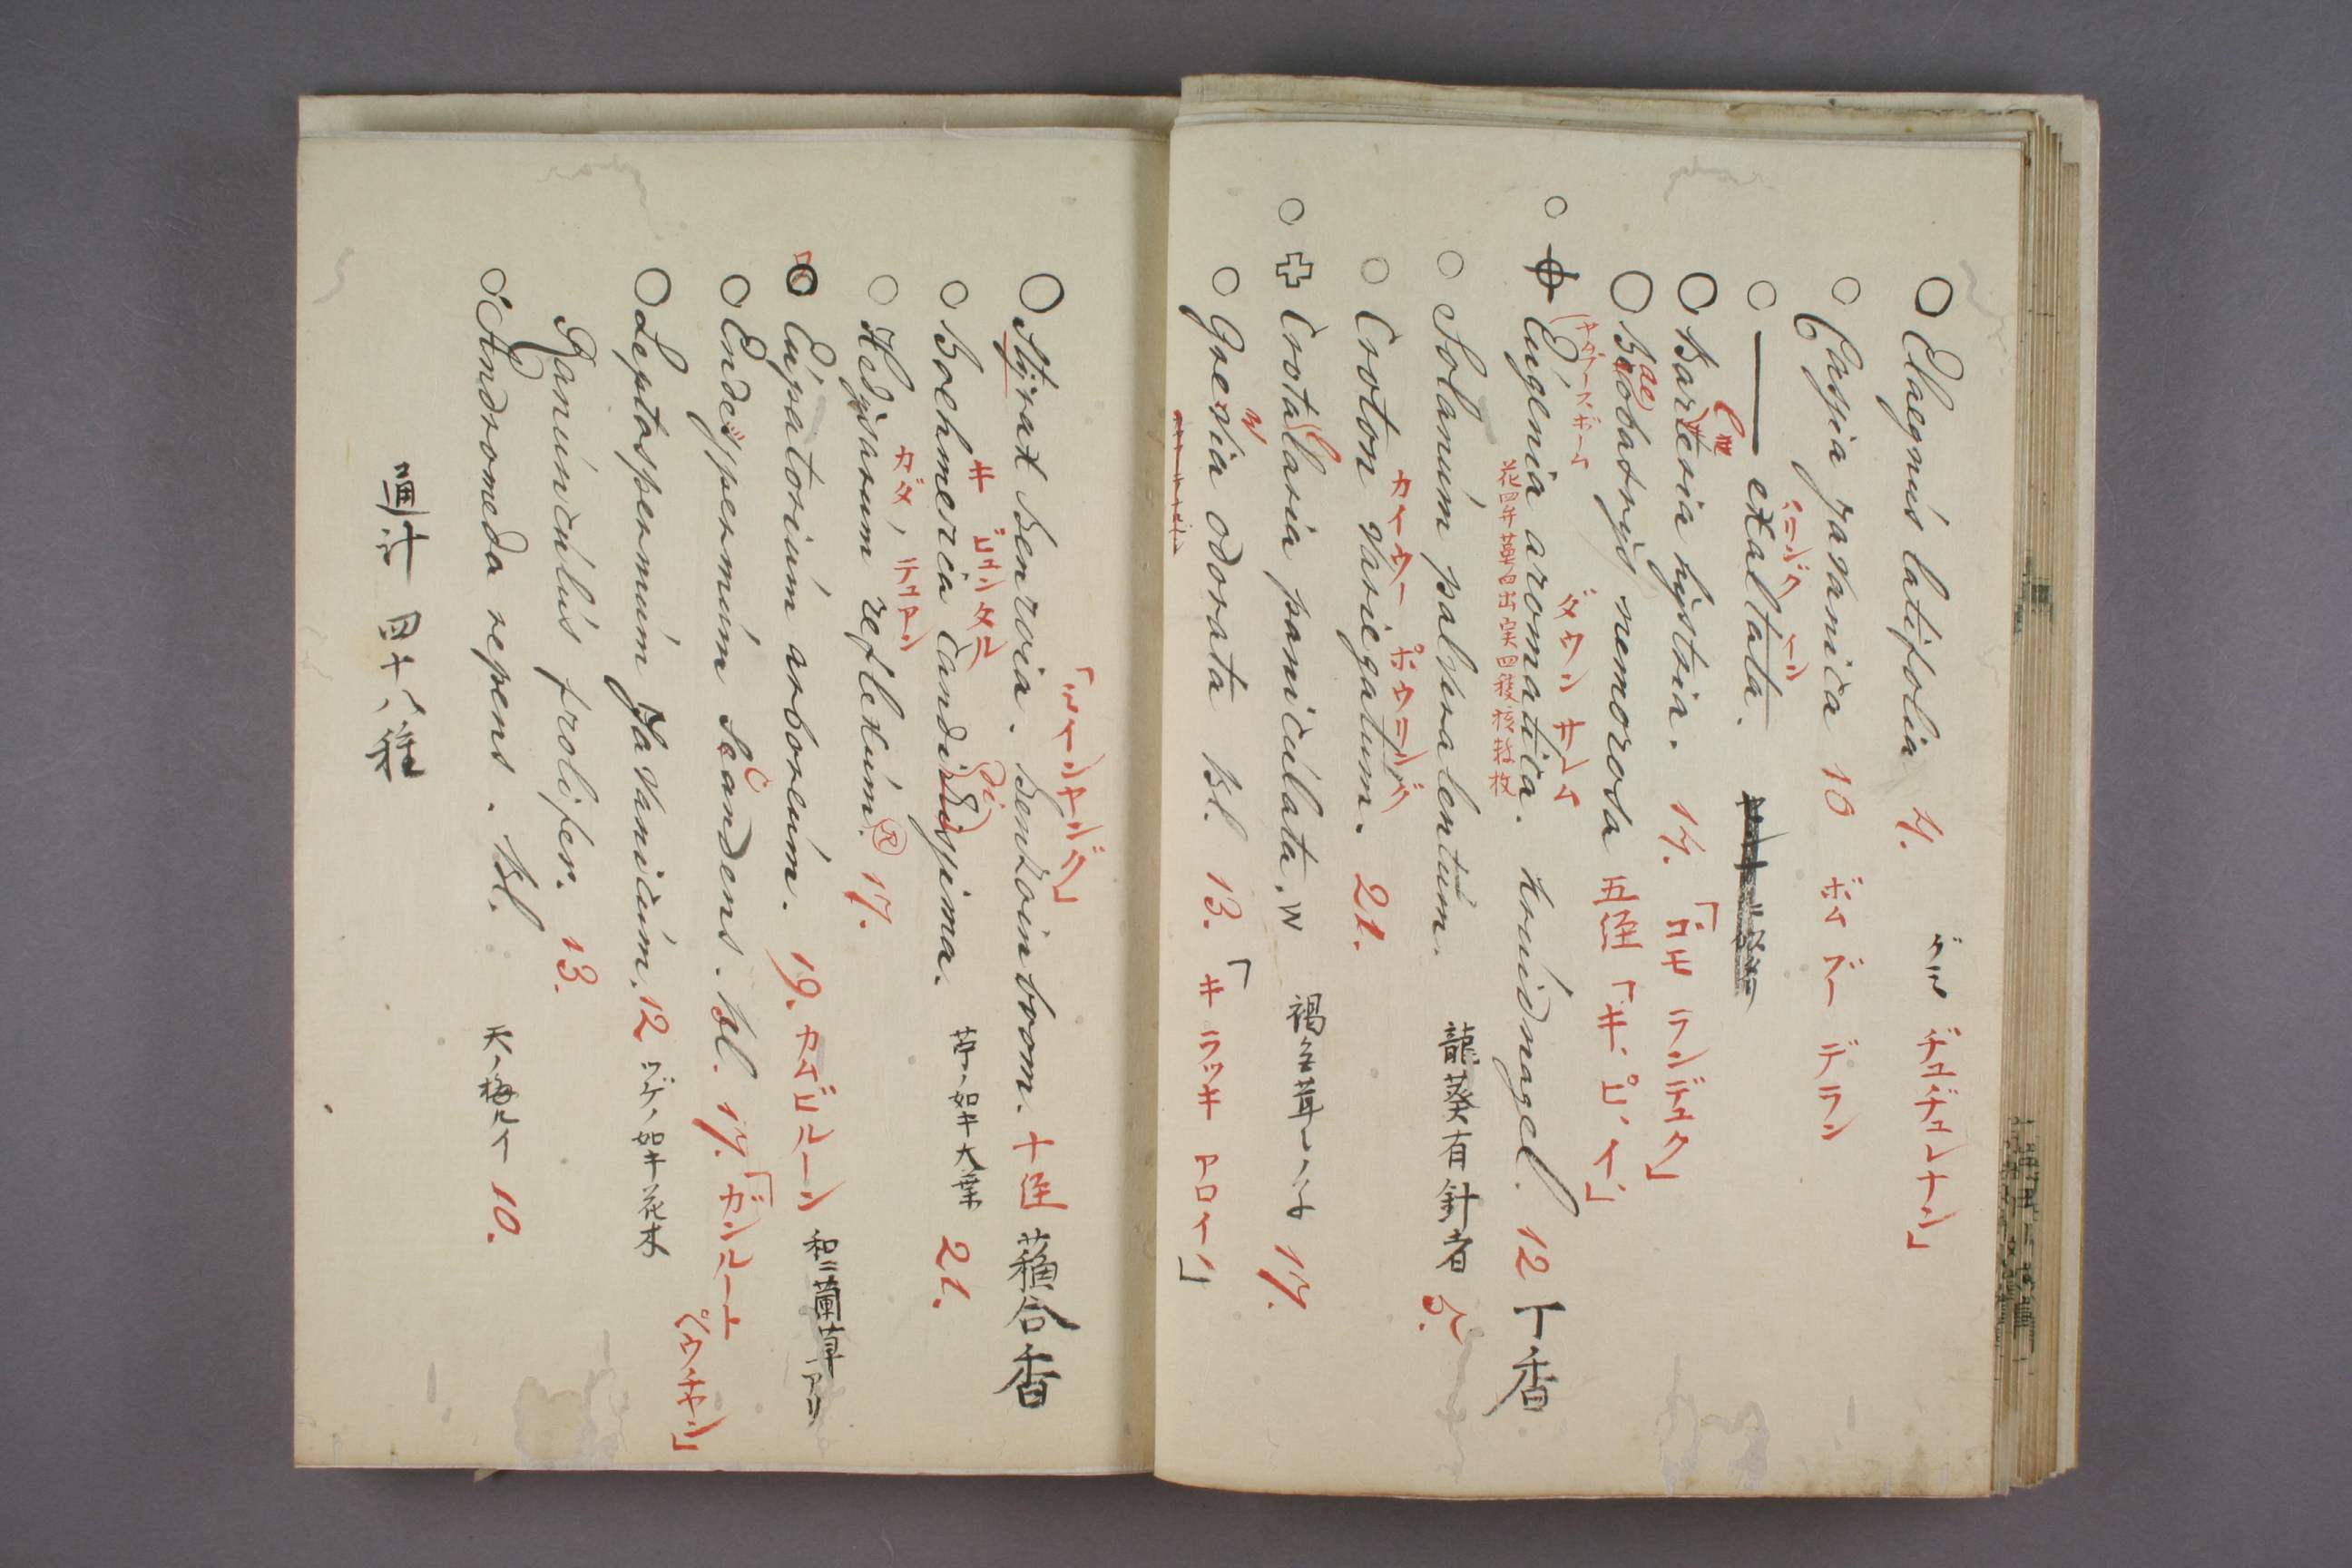 ○ Elaegnús latifolia 4. グミ ヂュヂュレナン」
○ Cassia javanica 10 ボム ブー デラン
○ —— exaltata.
バリンク イーン
○ Barleria hystrix. 14. 「ゴモ ランデュク」
○ Baeobatrys nemorosa 五 「キ、ピ、イ、」
○ Eúgenia aromatica. kruidnagel. 12 丁香
ダウン サーム
花四弁 萼四出 実四稜 核数枚
○ Solanúm palviralentúm. 龍葵有針者 5.
○ Croton variegatum. 21.
カイウー ポウリング
○ Crotallaria panicúlata. W 褐色茸 17.
○ Grewia odorata Bl. 13. 「キ ラッキ アロイ」
「ミインヤング」
○ Styrax Benzoin. Benzoinboom. 十 蘓合香
キ ビュンタル
○ Boehmeria candidissima. 苧ノ如キ大葉 21.
カダ、テュアン
○ Hedysarum reflexúm. 17.
○ Eúpatoriúm arboreúm. 19. カムビルーン 和ニ蘭草アリ
○ Endespermúm scandens. Bl. 17. 「ガンルート ペウチャン」
○ Leptospermúm Javanicúm. 12 ツゲノ如キ花木
Ranúncúlús prolifer. 13.
○ Andromeda repens. Bl. 天ノ梅ルイ 10.
通計 四十八種